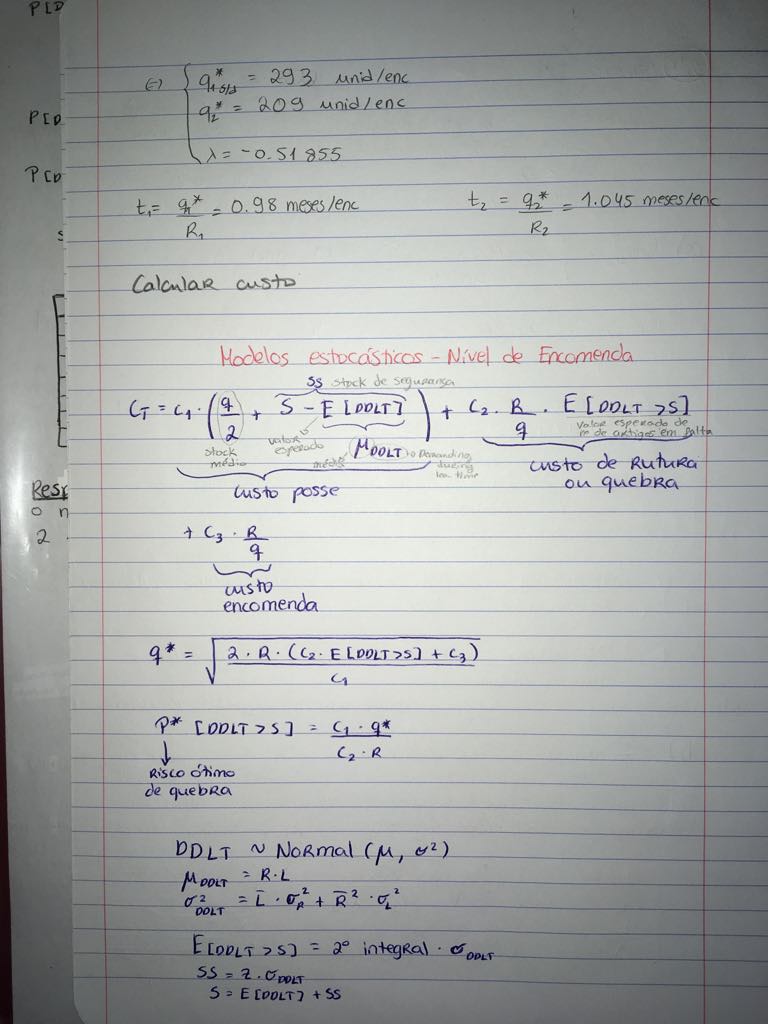 P[D
P[D
P[D
s
Resp
o n
2
⇔ { q*₁ = 293 unid/enc
q₂* = 209 unid/enc
λ = -0.51855
t₁ = q₁*/R₁ = 0.98 meses/enc
t₂ = q₂*/R₂ = 1.045 meses/enc
Calcular custo
Modelos estocásticos - Nível de Encomenda
SS stock de segurança
C_T = C₁ · (q/2 + S - E[DDLT]) + C₂ · R/q · E[DDLT > S]
stock médio
valor esperado
média μ_DDLT → Demanding during lea time
valor esperado de nº de artigos em falta
custo posse
custo de rutura ou quebra
+ C₃ · R/q
custo
encomenda
q* = √(2 · R · (C₂ · E[DDLT>S] + C₃) / C₁)
P* [DDLT > S] = C₁ · q* / C₂ · R
↓
Risco ótimo
de quebra
DDLT ~ Normal (μ, σ²)
μ_DDLT = R · L
σ²_DDLT = L̄ · σ_R² + R̄² · σ_L²
E[DDLT > S] = 2º integral · σ_DDLT
SS = z · σ_DDLT
S = E[DDLT] + SS